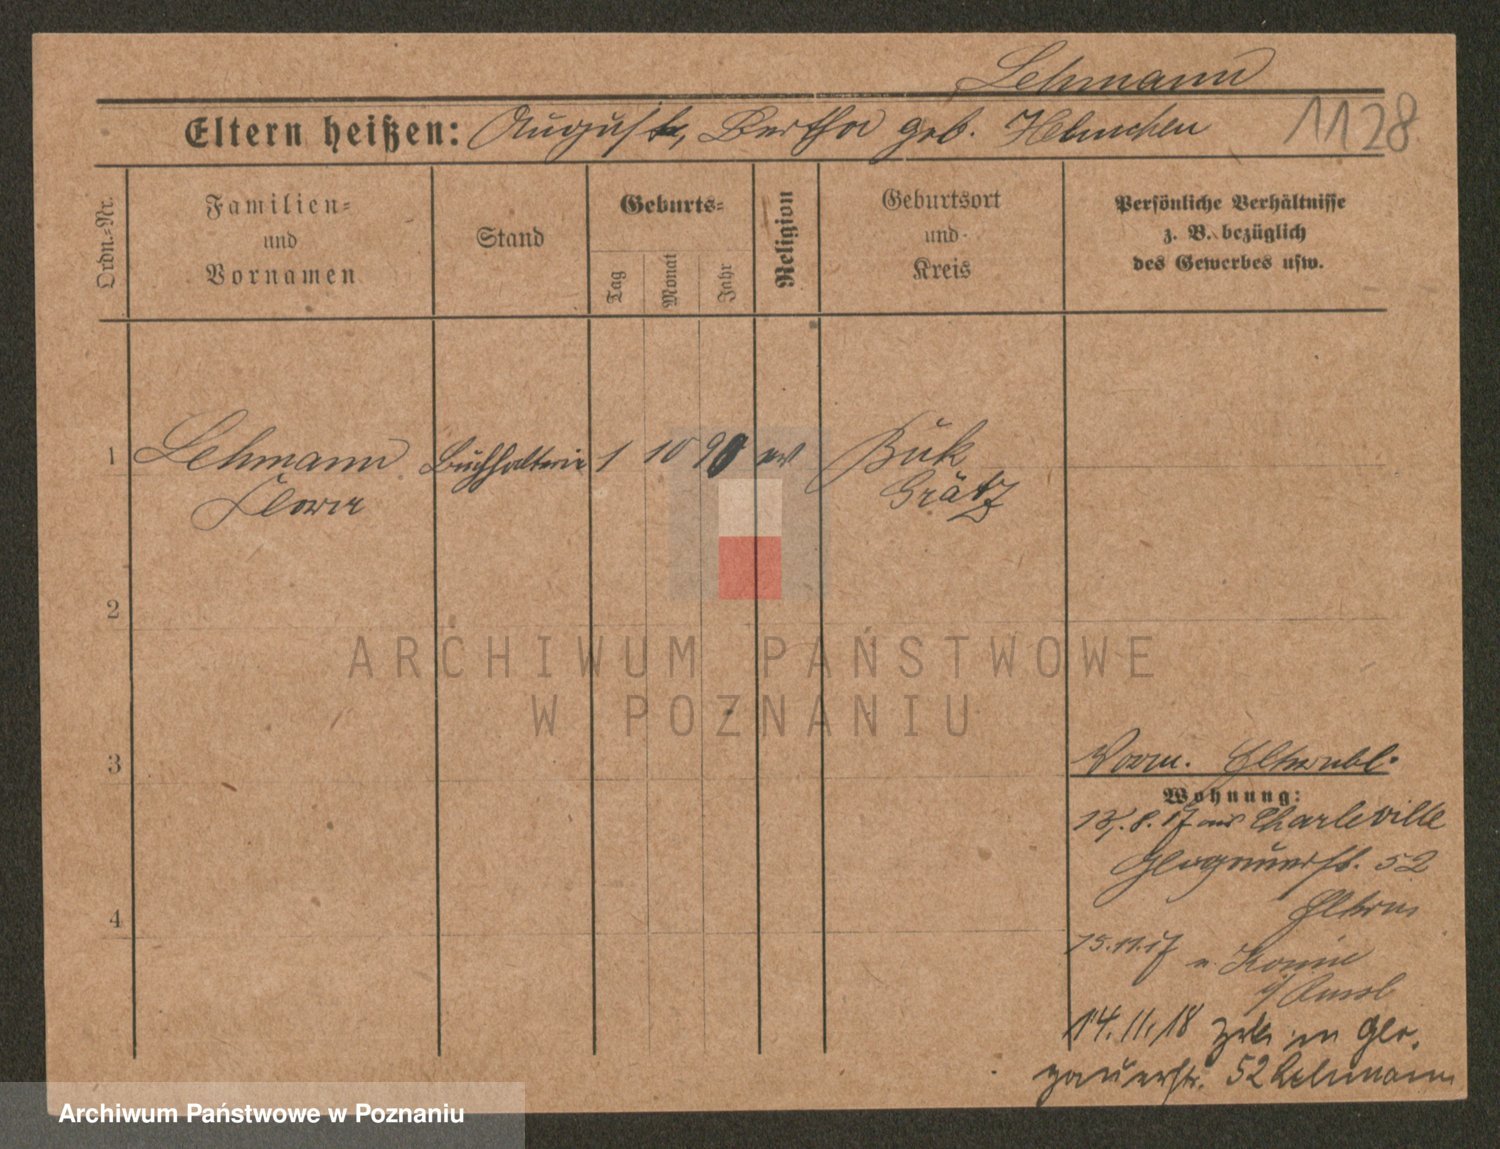 Lehmann
Eltern heißen: August, Bertha geb. Helmchen
1128
Ordn.-Nr.
Familien-
und
Vornamen
Stand
Geburts-
Tag
Monat
Jahr
Religion
Geburtsort
und
Kreis
Persönliche Verhältnisse
z. B. bezüglich
des Gewerbes usw.
1 Lehmann Buchhalterin 1 10 90 ev Buk
Grätz
2
ARCHIWUM PAŃSTWOWE
W POZNANIU
3
Wohnung:
13.8.17 aus Charleville
Glogauerstr. 52
Eltern
4
15.11.17 n.
14.11.18 in Glo-
gauerstr. 52 Lehmann
Archiwum Państwowe w Poznaniu